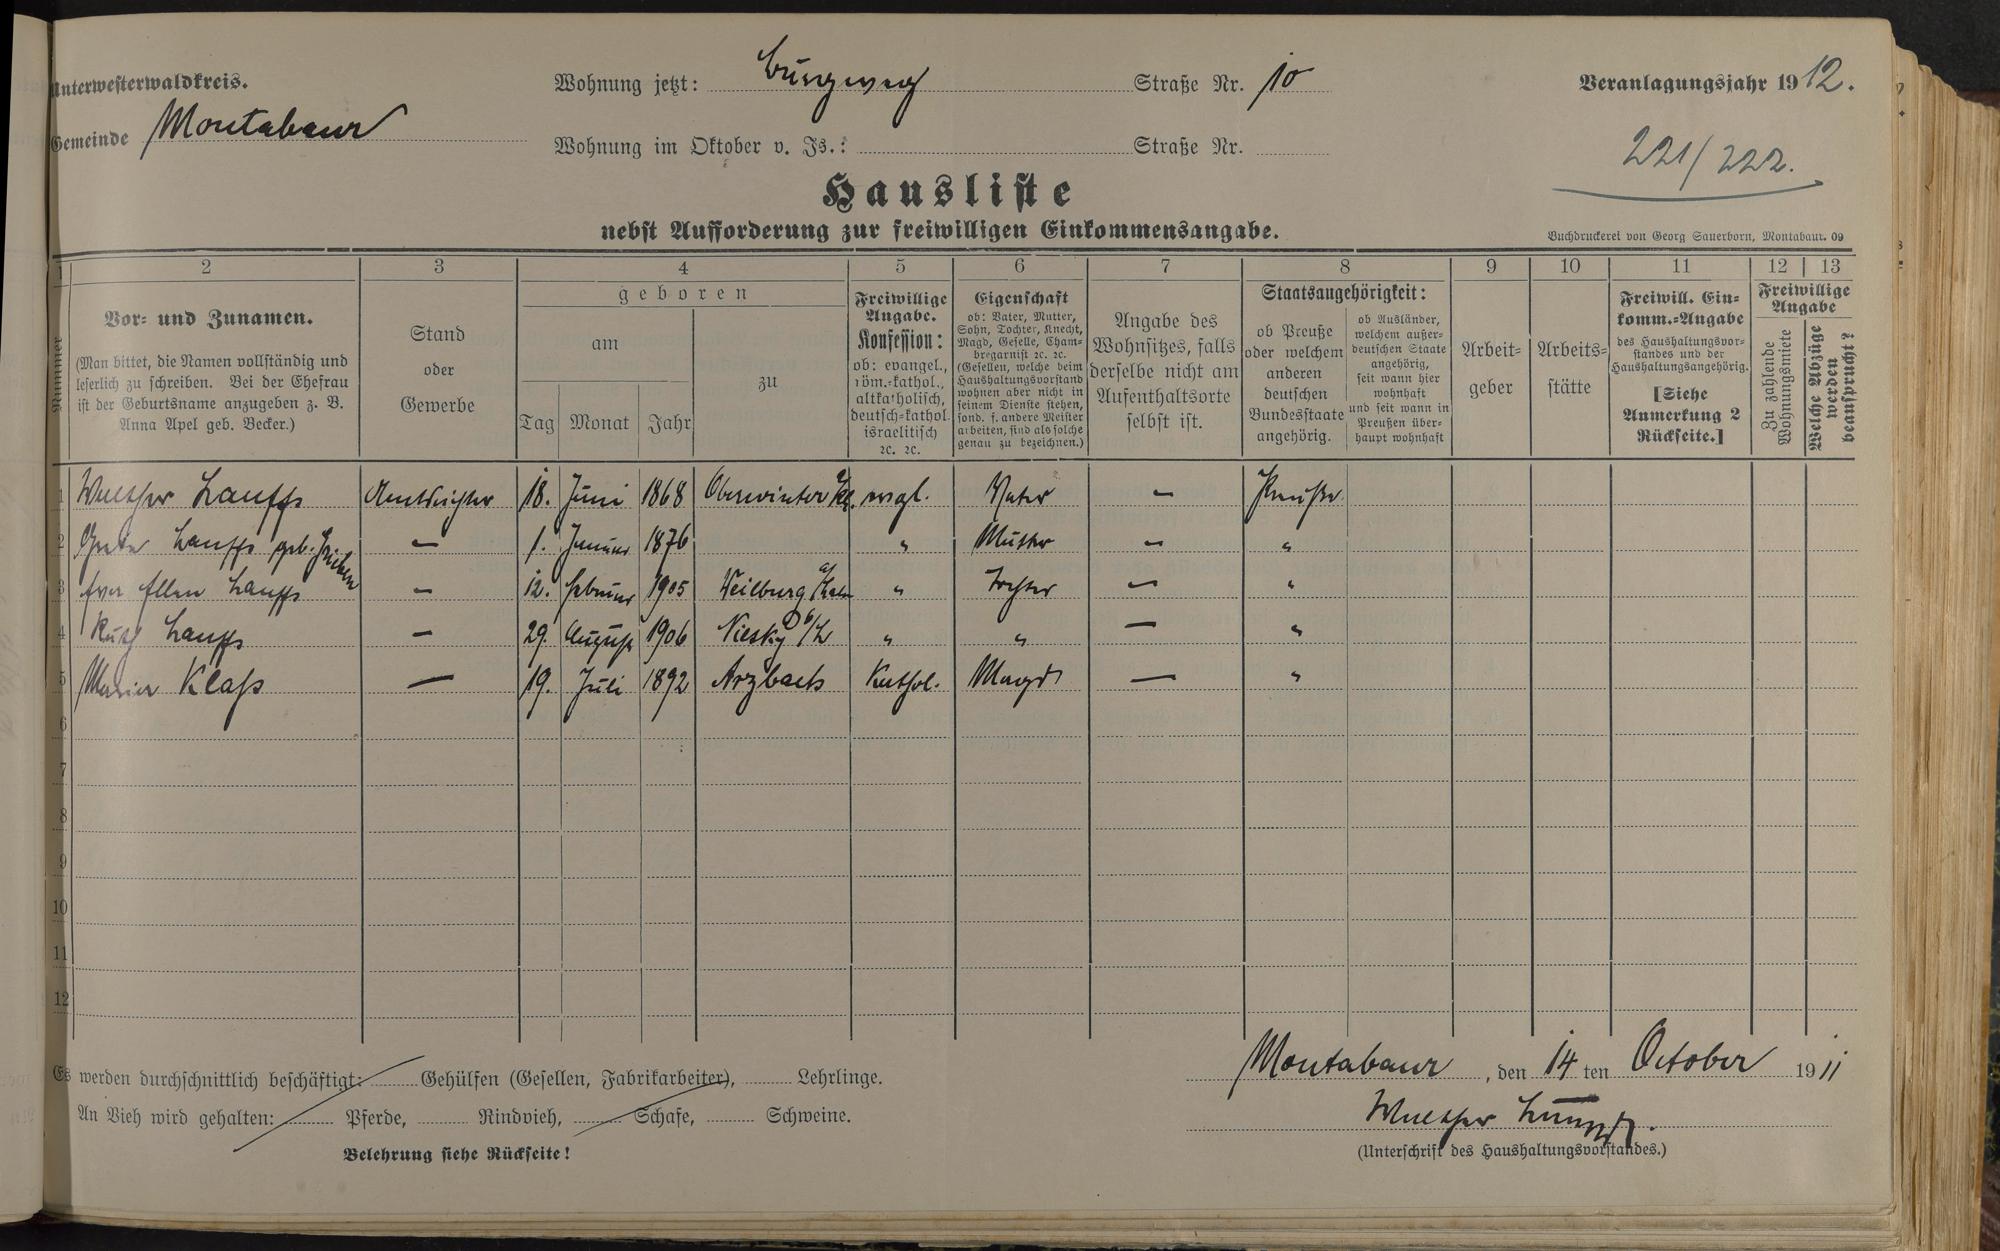 Unterwesterwaldkreis.
Gemeinde Montabaur
Wohnung jetzt: Burgweg Straße Nr. 10
Wohnung im Oktober v. Js.: Straße Nr.
Veranlagungsjahr 1912.
221/222.
Hausliste
nebst Aufforderung zur freiwilligen Einkommensangabe.
Buchdruckerei von Georg Sauerborn, Montabaur. 09
1 2 3 4 5 6 7 8 9 10 11 12 13
Nummer
Vor- und Zunamen.
(Man bittet, die Namen vollständig und
leserlich zu schreiben. Bei der Ehefrau
ist der Geburtsname anzugeben z. B.
Anna Apel geb. Becker.)
Stand
oder
Gewerbe
geboren
am
Tag Monat Jahr
zu
Freiwillige
Angabe.
Konfession:
ob: evangel.,
röm.-kathol.,
altkatholisch,
deutsch-kathol.
israelitisch
2c. 2c.
Eigenschaft
ob: Vater, Mutter,
Sohn, Tochter, Knecht,
Magd, Geselle, Cham-
bregarnist 2c. 2c.
(Gesellen, welche beim
Haushaltungsvorstand
wohnen aber nicht in
seinem Dienste stehen,
sond. f. andere Meister
arbeiten, sind als solche
genau zu bezeichnen.)
Angabe des
Wohnsitzes, falls
derselbe nicht am
Aufenthaltsorte
selbst ist.
Staatsangehörigkeit:
ob Preuße
oder welchem
anderen
deutschen
Bundesstaate
angehörig.
ob Ausländer,
welchem außer-
deutschen Staate
angehörig,
seit wann hier
wohnhaft
und seit wann in
Preußen über-
haupt wohnhaft
Arbeit-
geber
Arbeits-
stätte
Freiwill. Ein-
komm.-Angabe
des Haushaltungsvor-
standes und der
Haushaltungsangehörig.
[Siehe
Anmerkung 2
Rückseite.]
Freiwillige
Angabe
Zu zahlende
Wohnungsmiete
Welche Abzüge
werden
beansprucht?
1 Walther Lauffs Amtsrichter 18. Juni 1868 Oberwinter evgl. Vater — Preuße
2 Grete Lauffs geb. — 1. Januar 1876 " Mutter — "
3 Ellen Lauffs — 12. Februar 1905 Weilburg a/Lahn " Tochter — "
4 Ruth Lauffs — 29. August 1906 Niesky O/L " " — "
5 Maria Klaß — 19. Juli 1892 Arzbach Kathol. Magd — "
6
7
8
9
10
11
12
Es werden durchschnittlich beschäftigt: Gehülfen (Gesellen, Fabrikarbeiter), Lehrlinge.
An Vieh wird gehalten: Pferde, Rindvieh, Schafe, Schweine.
Belehrung siehe Rückseite!
Montabaur, den 14 ten October 1911
Walther Lauffs.
(Unterschrift des Haushaltungsvorstandes.)